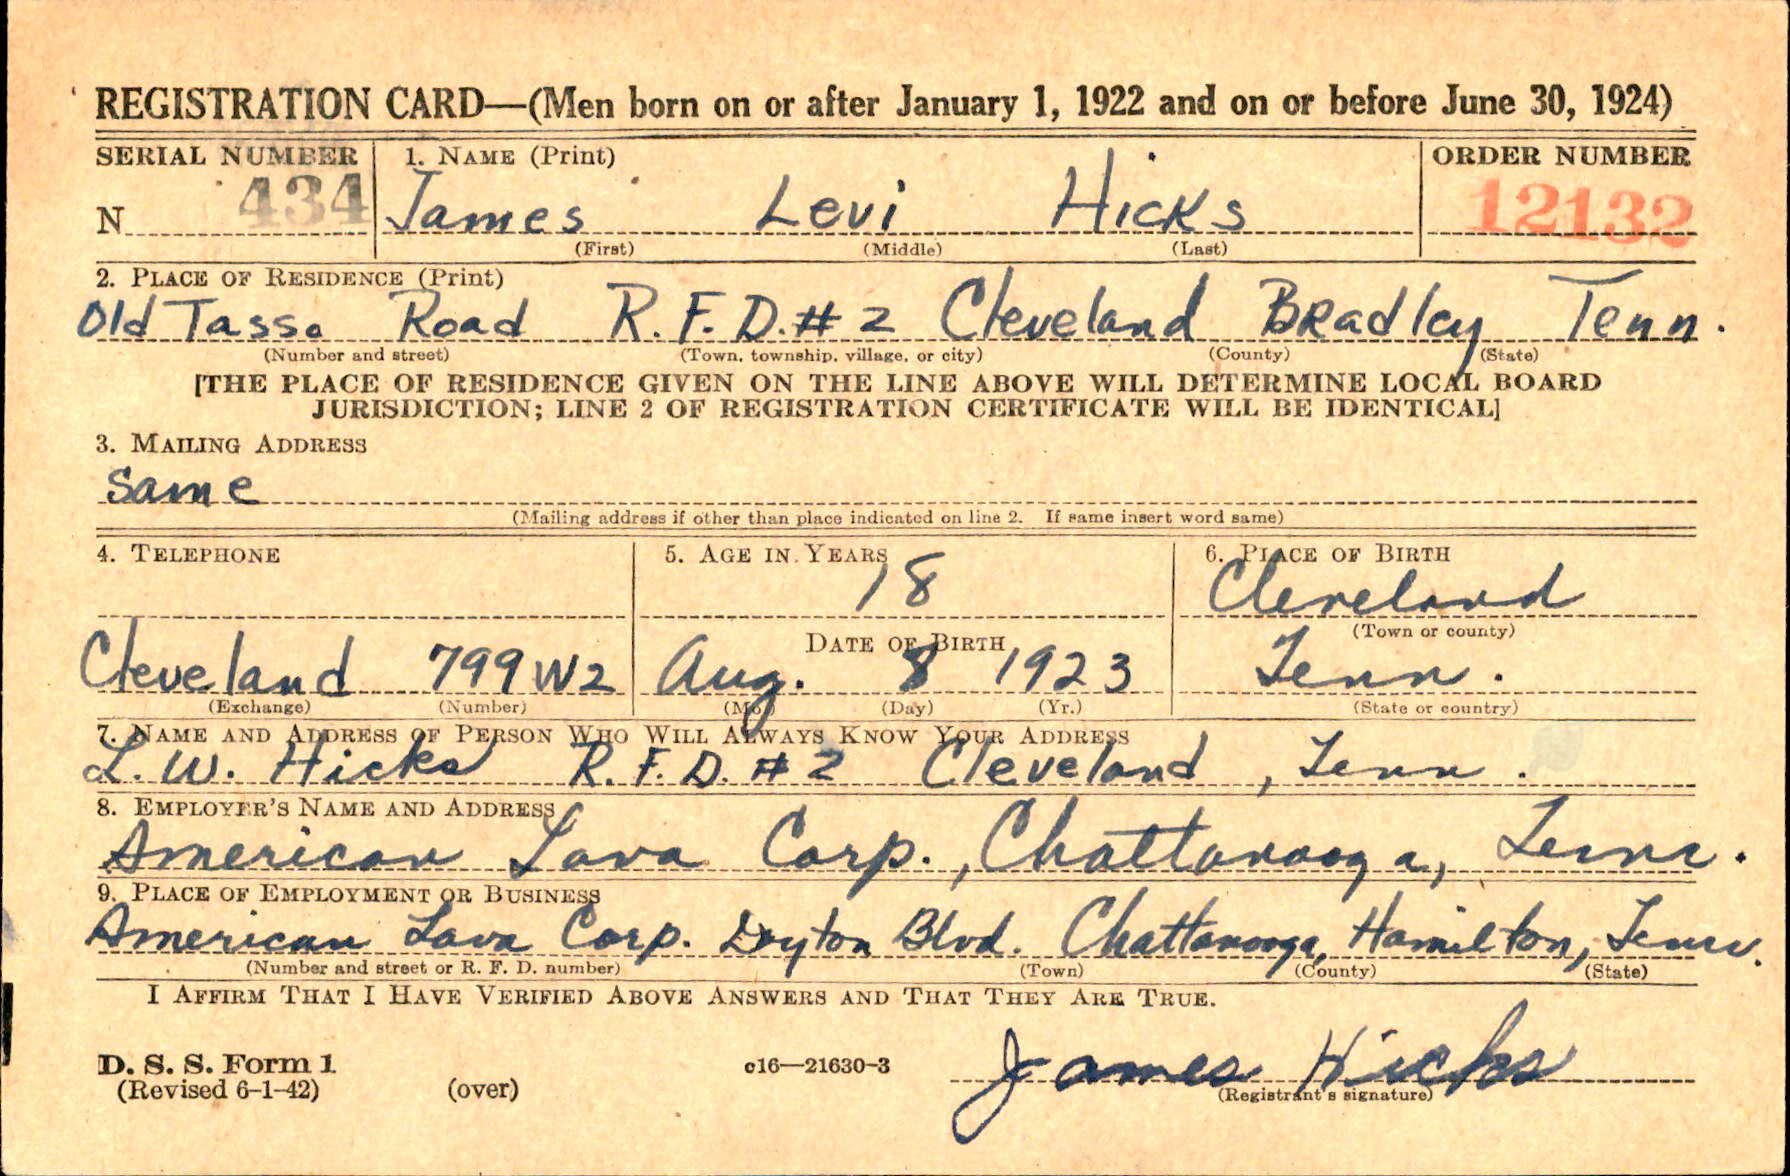 REGISTRATION CARD—(Men born on or after January 1, 1922 and on or before June 30, 1924)
SERIAL NUMBER 1. NAME (Print) ORDER NUMBER
N 434 James Levi Hicks 12132
(First) (Middle) (Last)
2. PLACE OF RESIDENCE (Print)
Old Tasso Road R.F.D.#2 Cleveland Bradley Tenn.
(Number and street) (Town, township, village, or city) (County) (State)
[THE PLACE OF RESIDENCE GIVEN ON THE LINE ABOVE WILL DETERMINE LOCAL BOARD
JURISDICTION; LINE 2 OF REGISTRATION CERTIFICATE WILL BE IDENTICAL]
3. MAILING ADDRESS
Same
(Mailing address if other than place indicated on line 2. If same insert word same)
4. TELEPHONE 5. AGE IN YEARS 6. PLACE OF BIRTH
18 Cleveland
DATE OF BIRTH (Town or county)
Cleveland 799W2 Aug. 8 1923 Tenn.
(Exchange) (Number) (Mo.) (Day) (Yr.) (State or country)
7. NAME AND ADDRESS OF PERSON WHO WILL ALWAYS KNOW YOUR ADDRESS
L.W. Hicks R.F.D. #2 Cleveland, Tenn.
8. EMPLOYER'S NAME AND ADDRESS
American Lava Corp., Chattanooga, Tenn.
9. PLACE OF EMPLOYMENT OR BUSINESS
American Lava Corp. Dayton Blvd. Chattanooga, Hamilton, Tenn.
(Number and street or R. F. D. number) (Town) (County) (State)
I AFFIRM THAT I HAVE VERIFIED ABOVE ANSWERS AND THAT THEY ARE TRUE.
D. S. S. Form 1 c16—21630-3 James Hicks
(Revised 6-1-42) (over) (Registrant's signature)